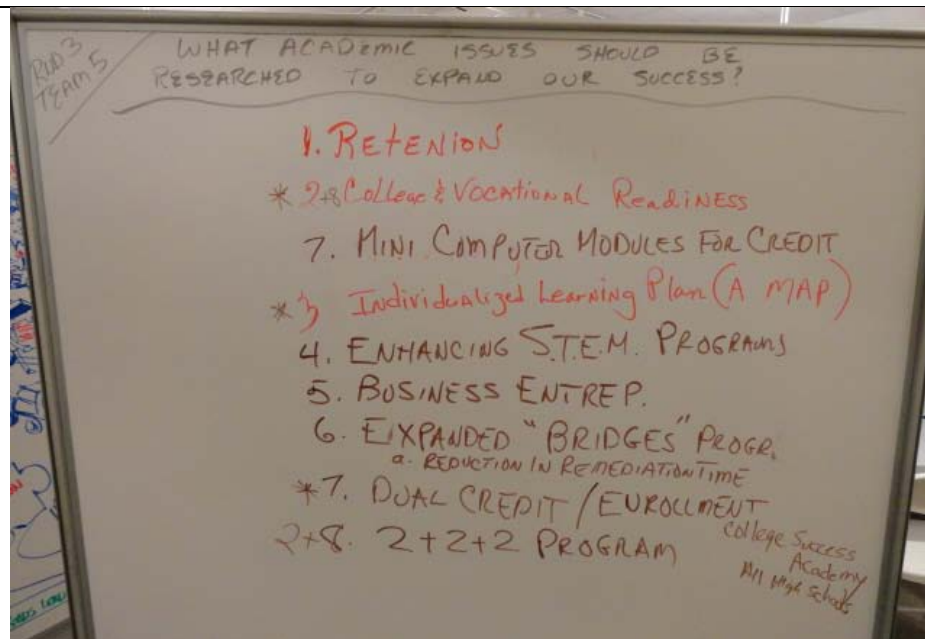 RND 3
TEAM 5
WHAT ACADEMIC ISSUES SHOULD BE
RESEARCHED TO EXPAND OUR SUCCESS?
1. RETENION
* 2+8 College & VOCATIONAL ReadiNESS
7. MINI COMPUTER MODULES FOR CREDIT
* 3 Individualized Learning Plan (A MAP)
4. ENHANCING S.T.E.M. PROGRAMS
5. BUSINESS ENTREP.
6. EXPANDED "BRIDGES" PROGR.
a. REDUCTION IN REMEDIATION TIME
* 7. DUAL CREDIT / ENROLLMENT
2+8. 2+2+2 PROGRAM
College Success
Academy
All High Schools